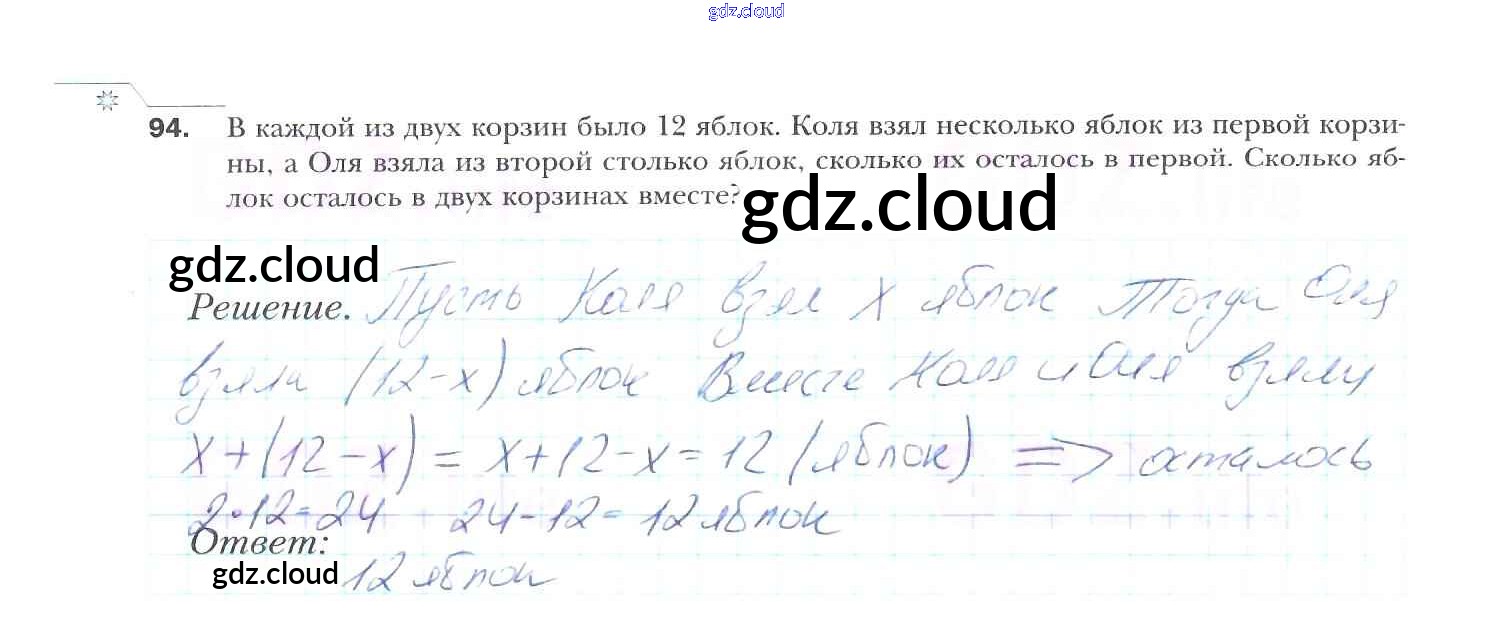 gdz.cloud
94. В каждой из двух корзин было 12 яблок. Коля взял несколько яблок из первой корзи-
ны, а Оля взяла из второй столько яблок, сколько их осталось в первой. Сколько яб-
лок осталось в двух корзинах вместе?
gdz.cloud
gdz.cloud
Решение. Пусть Коля взял x яблок Тогда Оля
взяла (12-x) яблок Вместе Коля и Оля взяли
x+(12-x) = x+12-x = 12 (яблок) => осталось
2·12=24 24-12= 12 яблок
Ответ:
gdz.cloud 12 яблок